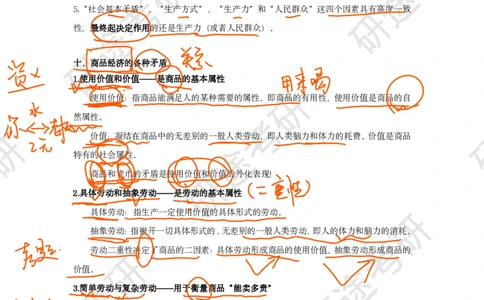 5.“社会基本矛盾”、“生产方式”、“生产力”和“人民群众”这四个因素具有高度一致
性，最终起决定作用的还是生产力（或者人民群众）。
十、商品经济的各种矛盾
1.使用价值和价值——是商品的基本属性
用来喝
使用价值：指商品能满足人的某种需要的属性，即商品的有用性，使用价值是商品的自
然属性。
水
2元
价值：凝结在商品中的无差别的一般人类劳动，即人类脑力和体力的耗费，价值是商品
特有的社会属性。
商品和货币的矛盾是使用价值和价值的外化表现！
2.具体劳动和抽象劳动——是劳动的基本属性
(二重性)
具体劳动：指生产一定使用价值的具体形式的劳动。
抽象劳动：指撇开一切具体形式的、无差别的一般人类劳动，即人的体力和脑力的消耗。
劳动二重性决定了商品的二因素：具体劳动形成商品的使用价值，抽象劳动形成商品的
价值。
3.简单劳动与复杂劳动——用于衡量商品“能卖多贵”
研途考研